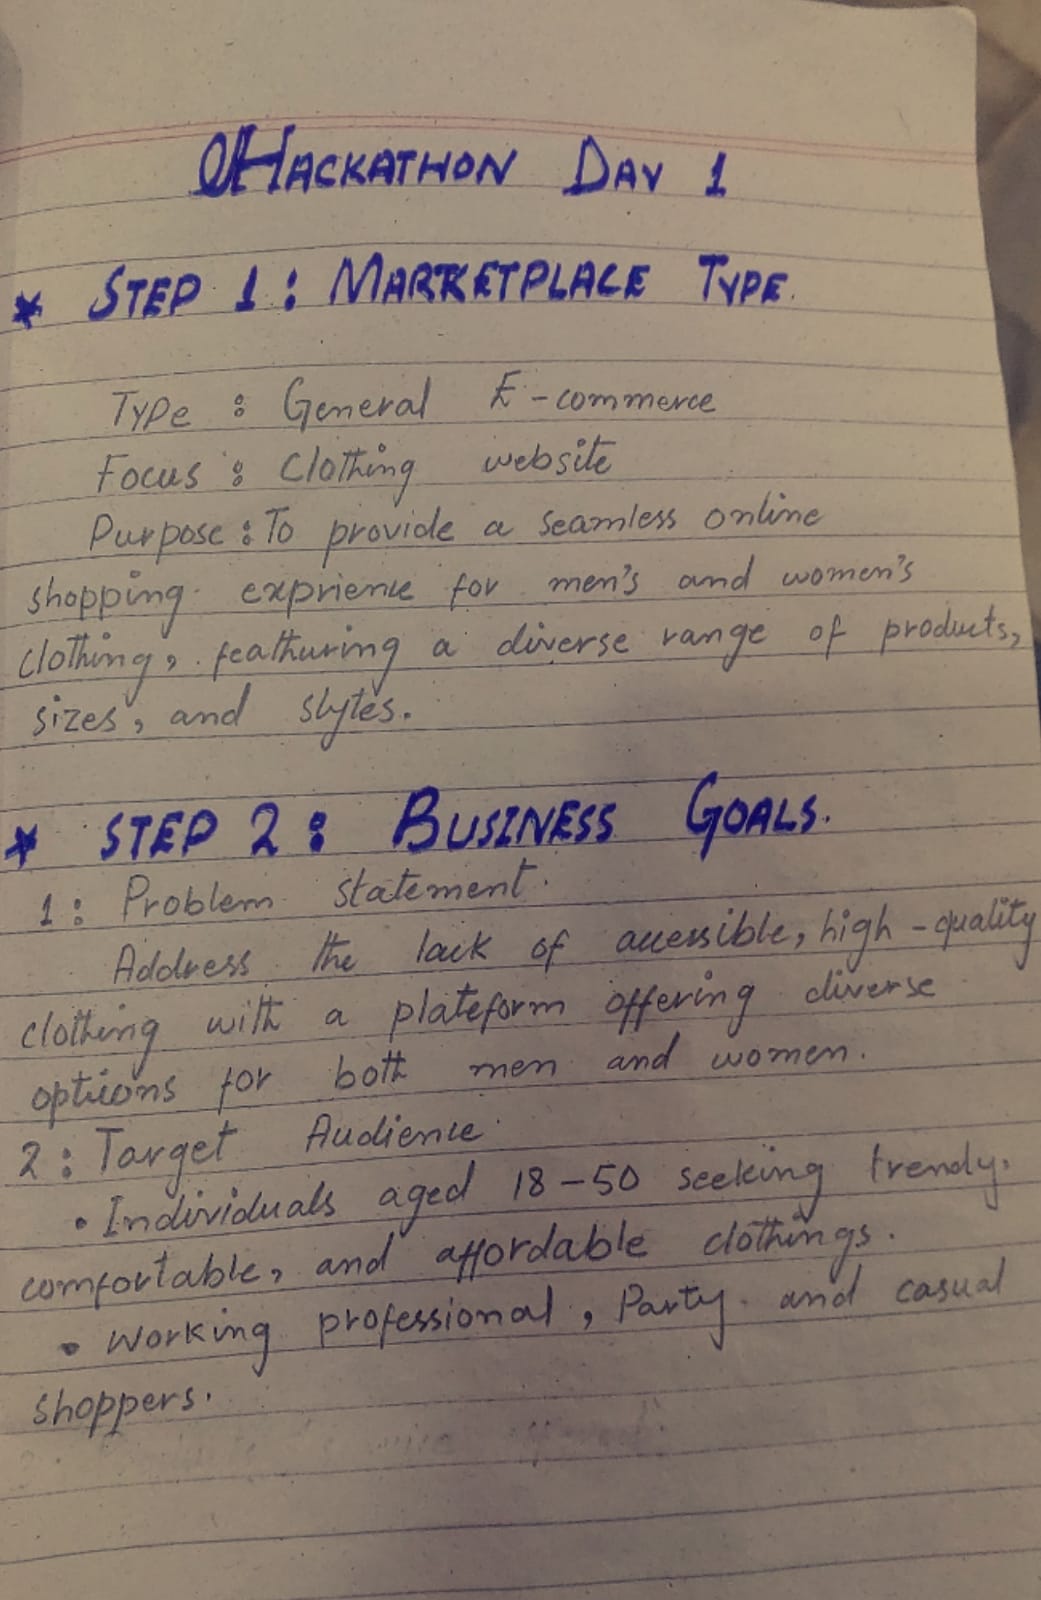 HACKATHON DAY 1
* STEP 1: MARKETPLACE TYPE.
Type : General E-commerce
Focus : Clothing website
Purpose : To provide a seamless online
shopping exprience for men's and women's
clothing, feathuring a diverse range of products,
sizes, and slytes.
* STEP 2: BUSINESS GOALS.
1: Problem statement.
Address the lack of accessible, high-quality
clothing with a plateform offering diverse
options for both men and women.
2: Target Audience.
• Individuals aged 18-50 seeking trendy,
comfortable, and affordable clothings.
• Working professional, Party and casual
shoppers.